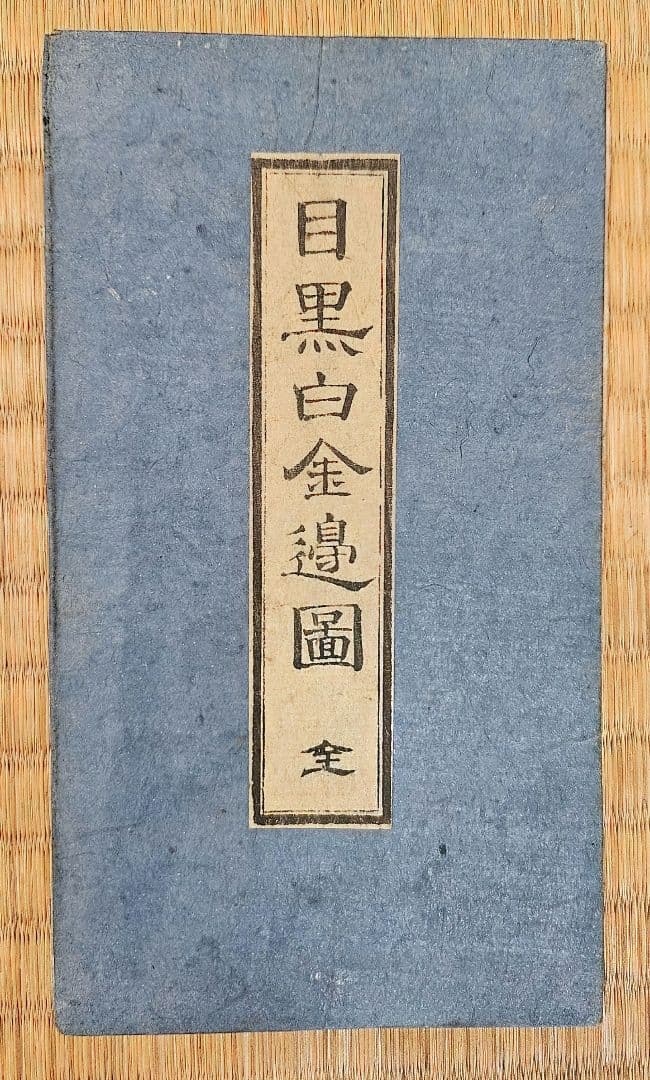 目黒白金邉圖
全